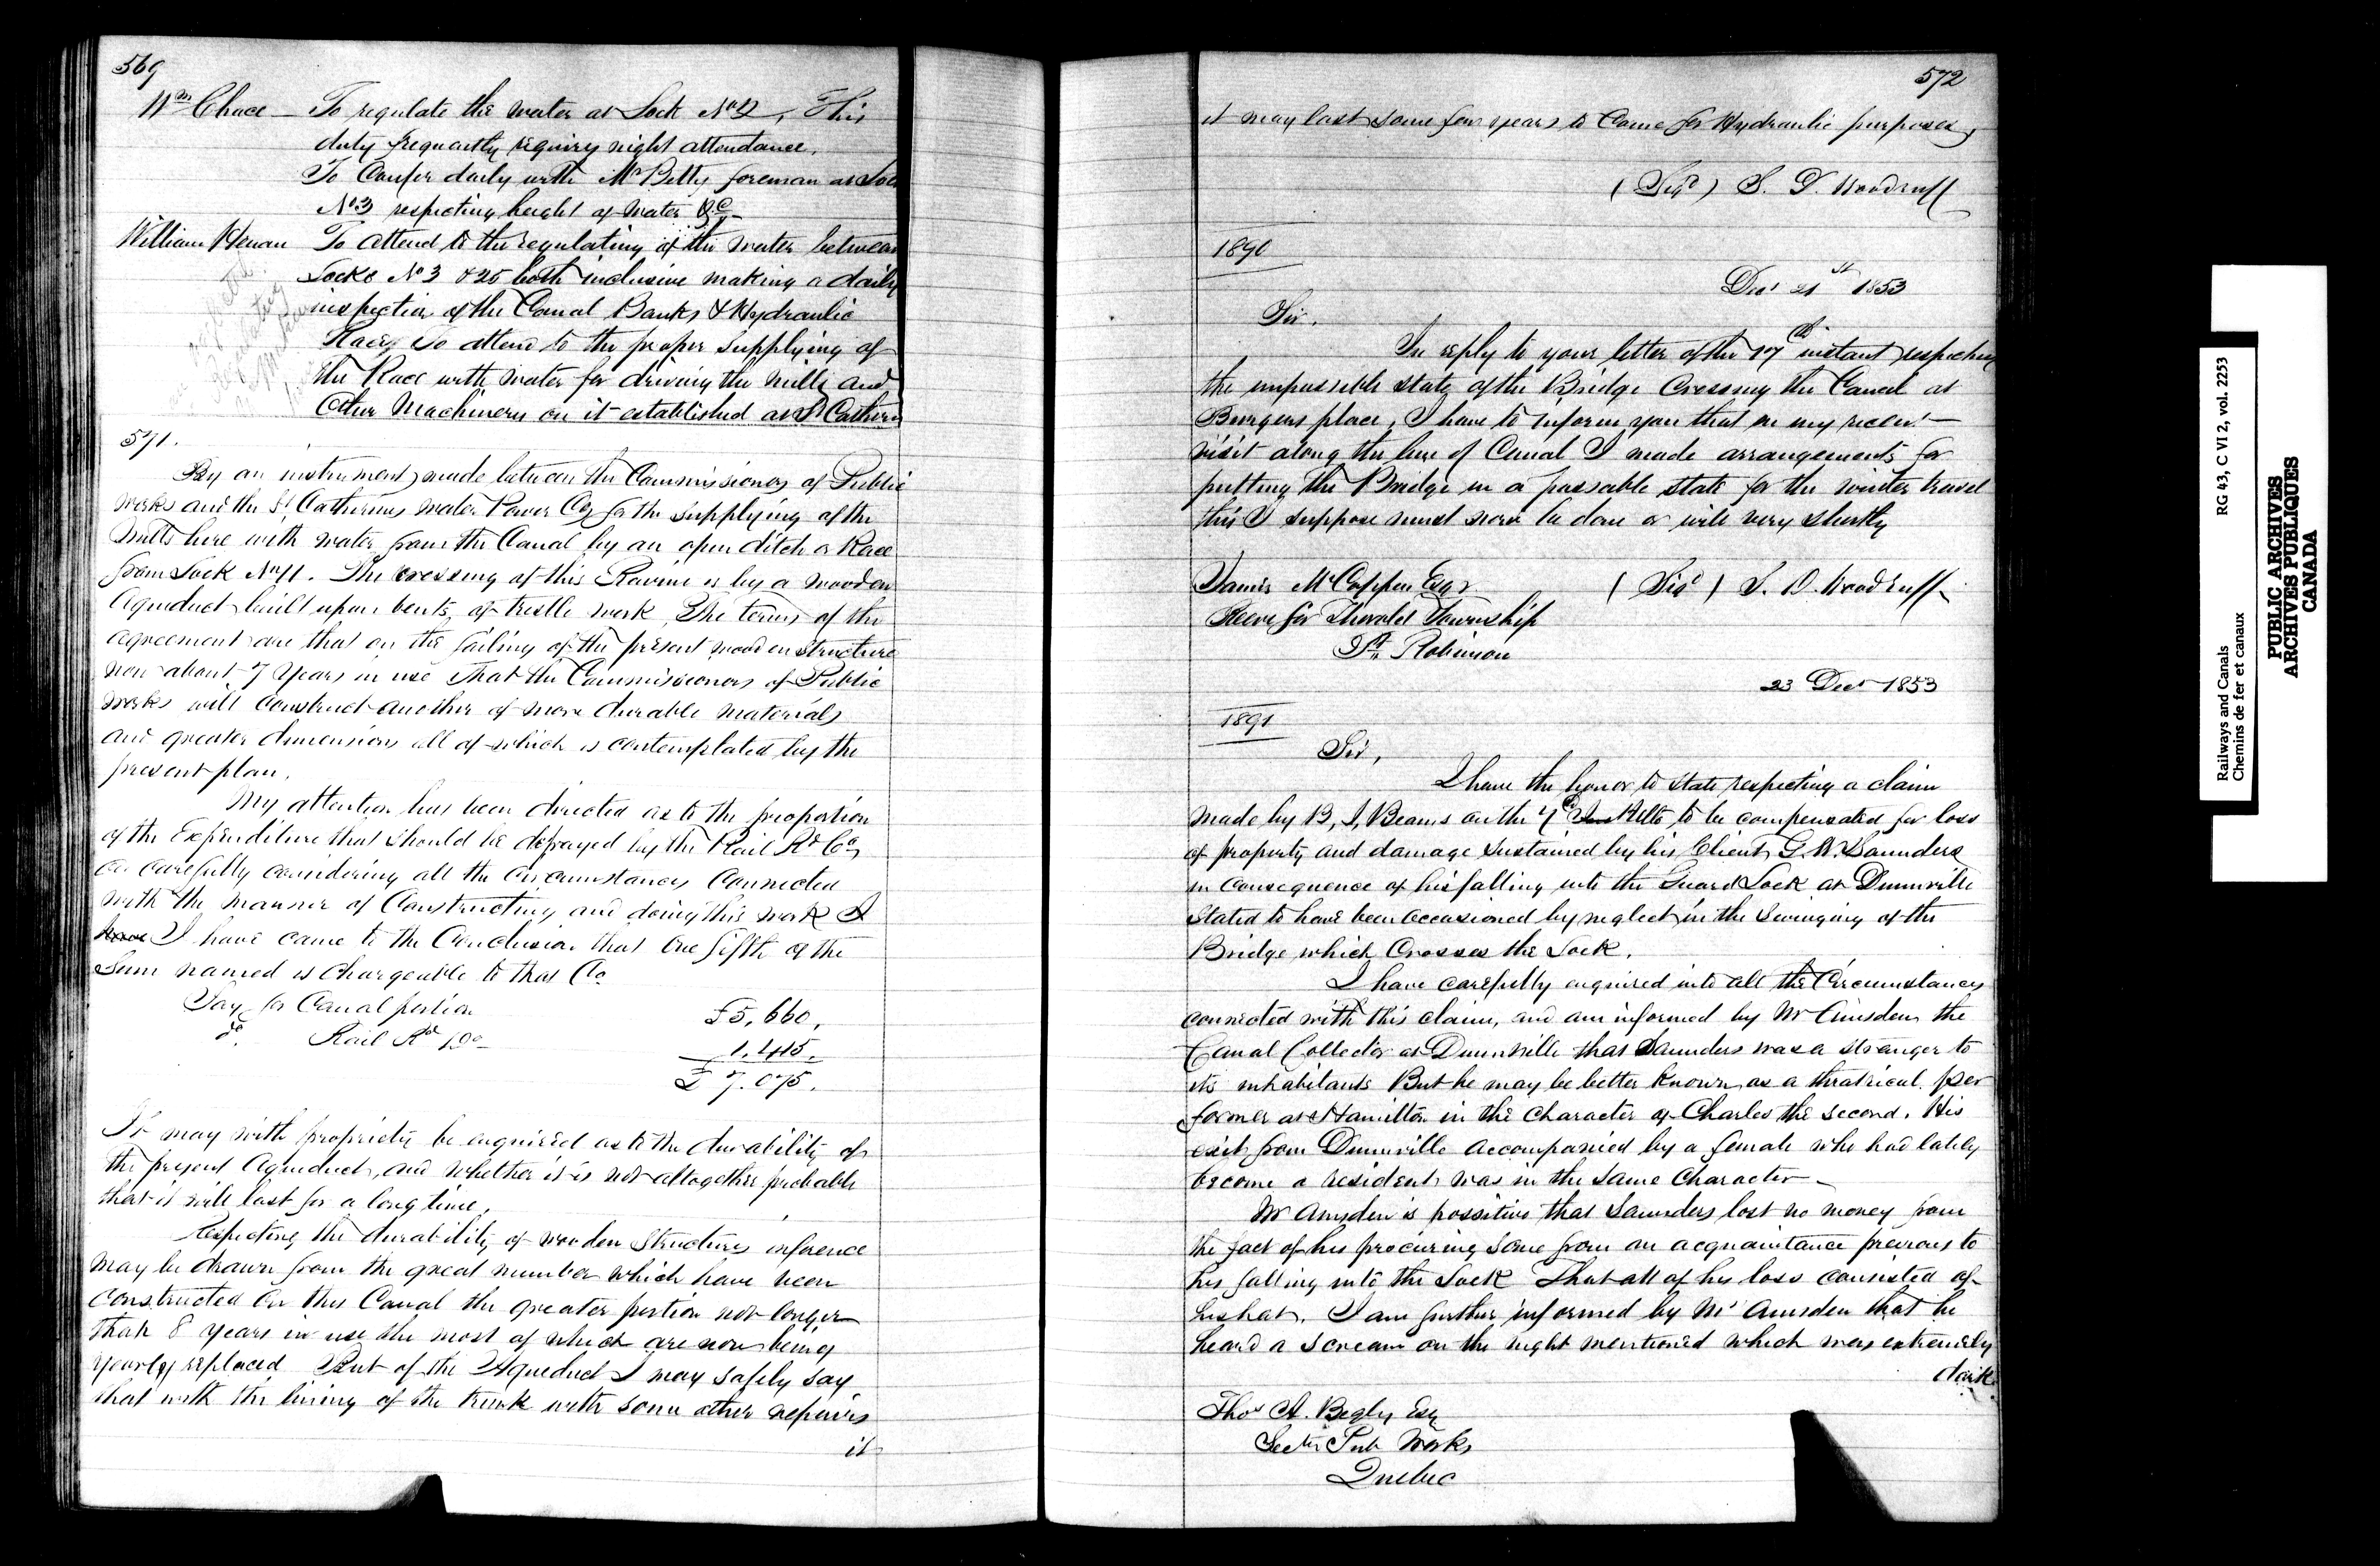 569
Wm Chace - To regulate the water at Lock No 2, This
duty frequently requiring night attendance.
To Confer daily with Mr Betty foreman at Lock
No 3 respecting height of water &c
William Henan To attend to the regulating of the water between
Locks No 3 & 25 both inclusive making a daily
inspection of the Canal Banks & Hydraulic
Race, To attend to the proper supplying of
the Race with water for driving the mills and
other Machinery on it established at St Catherin
571.
By an instrument made between the Commissioners of Public
works and the St Catherines Water Power Co, for the supplying of the
mills here with water from the Canal by an open ditch or Race
from Lock No 11. The crossing of this Ravine is by a wooden
Aqueduct built upon bents, of trestle work, The terms of the
agreement are that on the failing of the present wooden structure
now about 7 Years in use That the Commissioners of Public
works will construct another of more durable materials
and greater dimensions all of which is contemplated by the
present plan.
My attention has been directed as to the proportion
of the Expenditure that should be defrayed by the Rail Rd Co,
on carefully considering all the circumstances Connected
with the manner of Constructing and doing this work I
have I have came to the Conclusion that One fifth of the
Sum named is chargeable to that Co
Say for Canal portion £5,660,
do. Rail Rd Do 1,415,
£7.075.
It may with propriety be enquired as to the durability of
the present Aqueduct, and whether it is not altogether probable
that it will last for a long time.
Respecting the durability of wooden structures inference
may be drawn from the great number which have been
constructed on this Canal the greater portion not longer
than 8 years in use the most of which are now being
yearly replaced But of the Aqueduct I may safely say
that with the lining of the trunk with some other repairs
it
572
it may last some few years to Come for Hydraulic purposes,
(Sigd) S. D. Woodruff
1890
Decr 21st 1853
Sir.
In reply to your letter of the 17th instant respecting
the impassible state of the Bridge Crossing the Canal at
Burgers place, I have to inform you that on my recent
visit along the line of Canal I made arrangements for
putting the Bridge in a passable state for the winter travel
this I suppose must now be done or will very shortly
James McCoppen Esqr (Sigd) S. D. Woodruff
Reeve for Thorold Township
St. Robinson
23 Decr 1853
1891
Sir,
I have the honor to state respecting a claim
made by B, I, Beams on the 7th Ulto to be compensated for loss
of property and damage sustained by his Client G. W. Saunders
in consequence of his falling into the Guard Lock at Dunnville
stated to have been occasioned by neglect in the Swinging of the
Bridge which Crosses the Lock.
I have carefully enquired into all the Circumstances
connected with this claim, and am informed by Mr Amsden the
Canal Collector at Dunnville that Saunders was a stranger to
its inhabitants But he may be better known as a theatrical per
former at Hamilton in the character of Charles the second. His
exit from Dunnville accompanied by a female who had lately
become a resident was in the same Character -
Mr Amsden is possitive that Saunders lost no money from
the fact of his procuring some from an acquaintance previous to
his falling into the Lock That all of his loss consisted of
his hat. I am further informed by Mr Amsden that he
heard a scream on the night mentioned which was extremely
dark
Thos A. Begly Esq
Secty Pub Works
Quebec
Railways and Canals RG 43, C VI 2, vol. 2253
Chemins de fer et canaux
PUBLIC ARCHIVES
ARCHIVES PUBLIQUES
CANADA